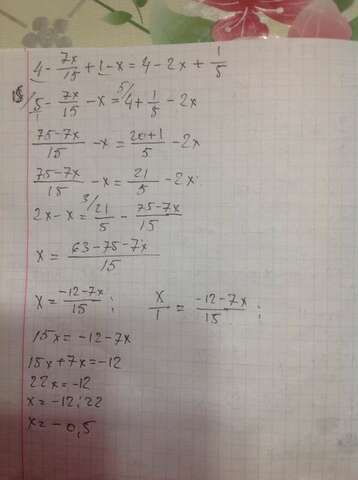 4 - 7x/15 + 1 - x = 4 - 2x + 1/5
15/ 5/1 - 7x/15 - x = 5/ 4 + 1/5 - 2x
75-7x/15 - x = 20+1/5 - 2x
75-7x/15 - x = 21/5 - 2x
2x - x = 3/ 21/5 - 75-7x/15
x = 63-75-7x/15
x = -12-7x/15 ; x/1 = -12-7x/15 ;
15x = -12-7x
15x+7x=-12
22x=-12
x=-12:22
x=-0,5